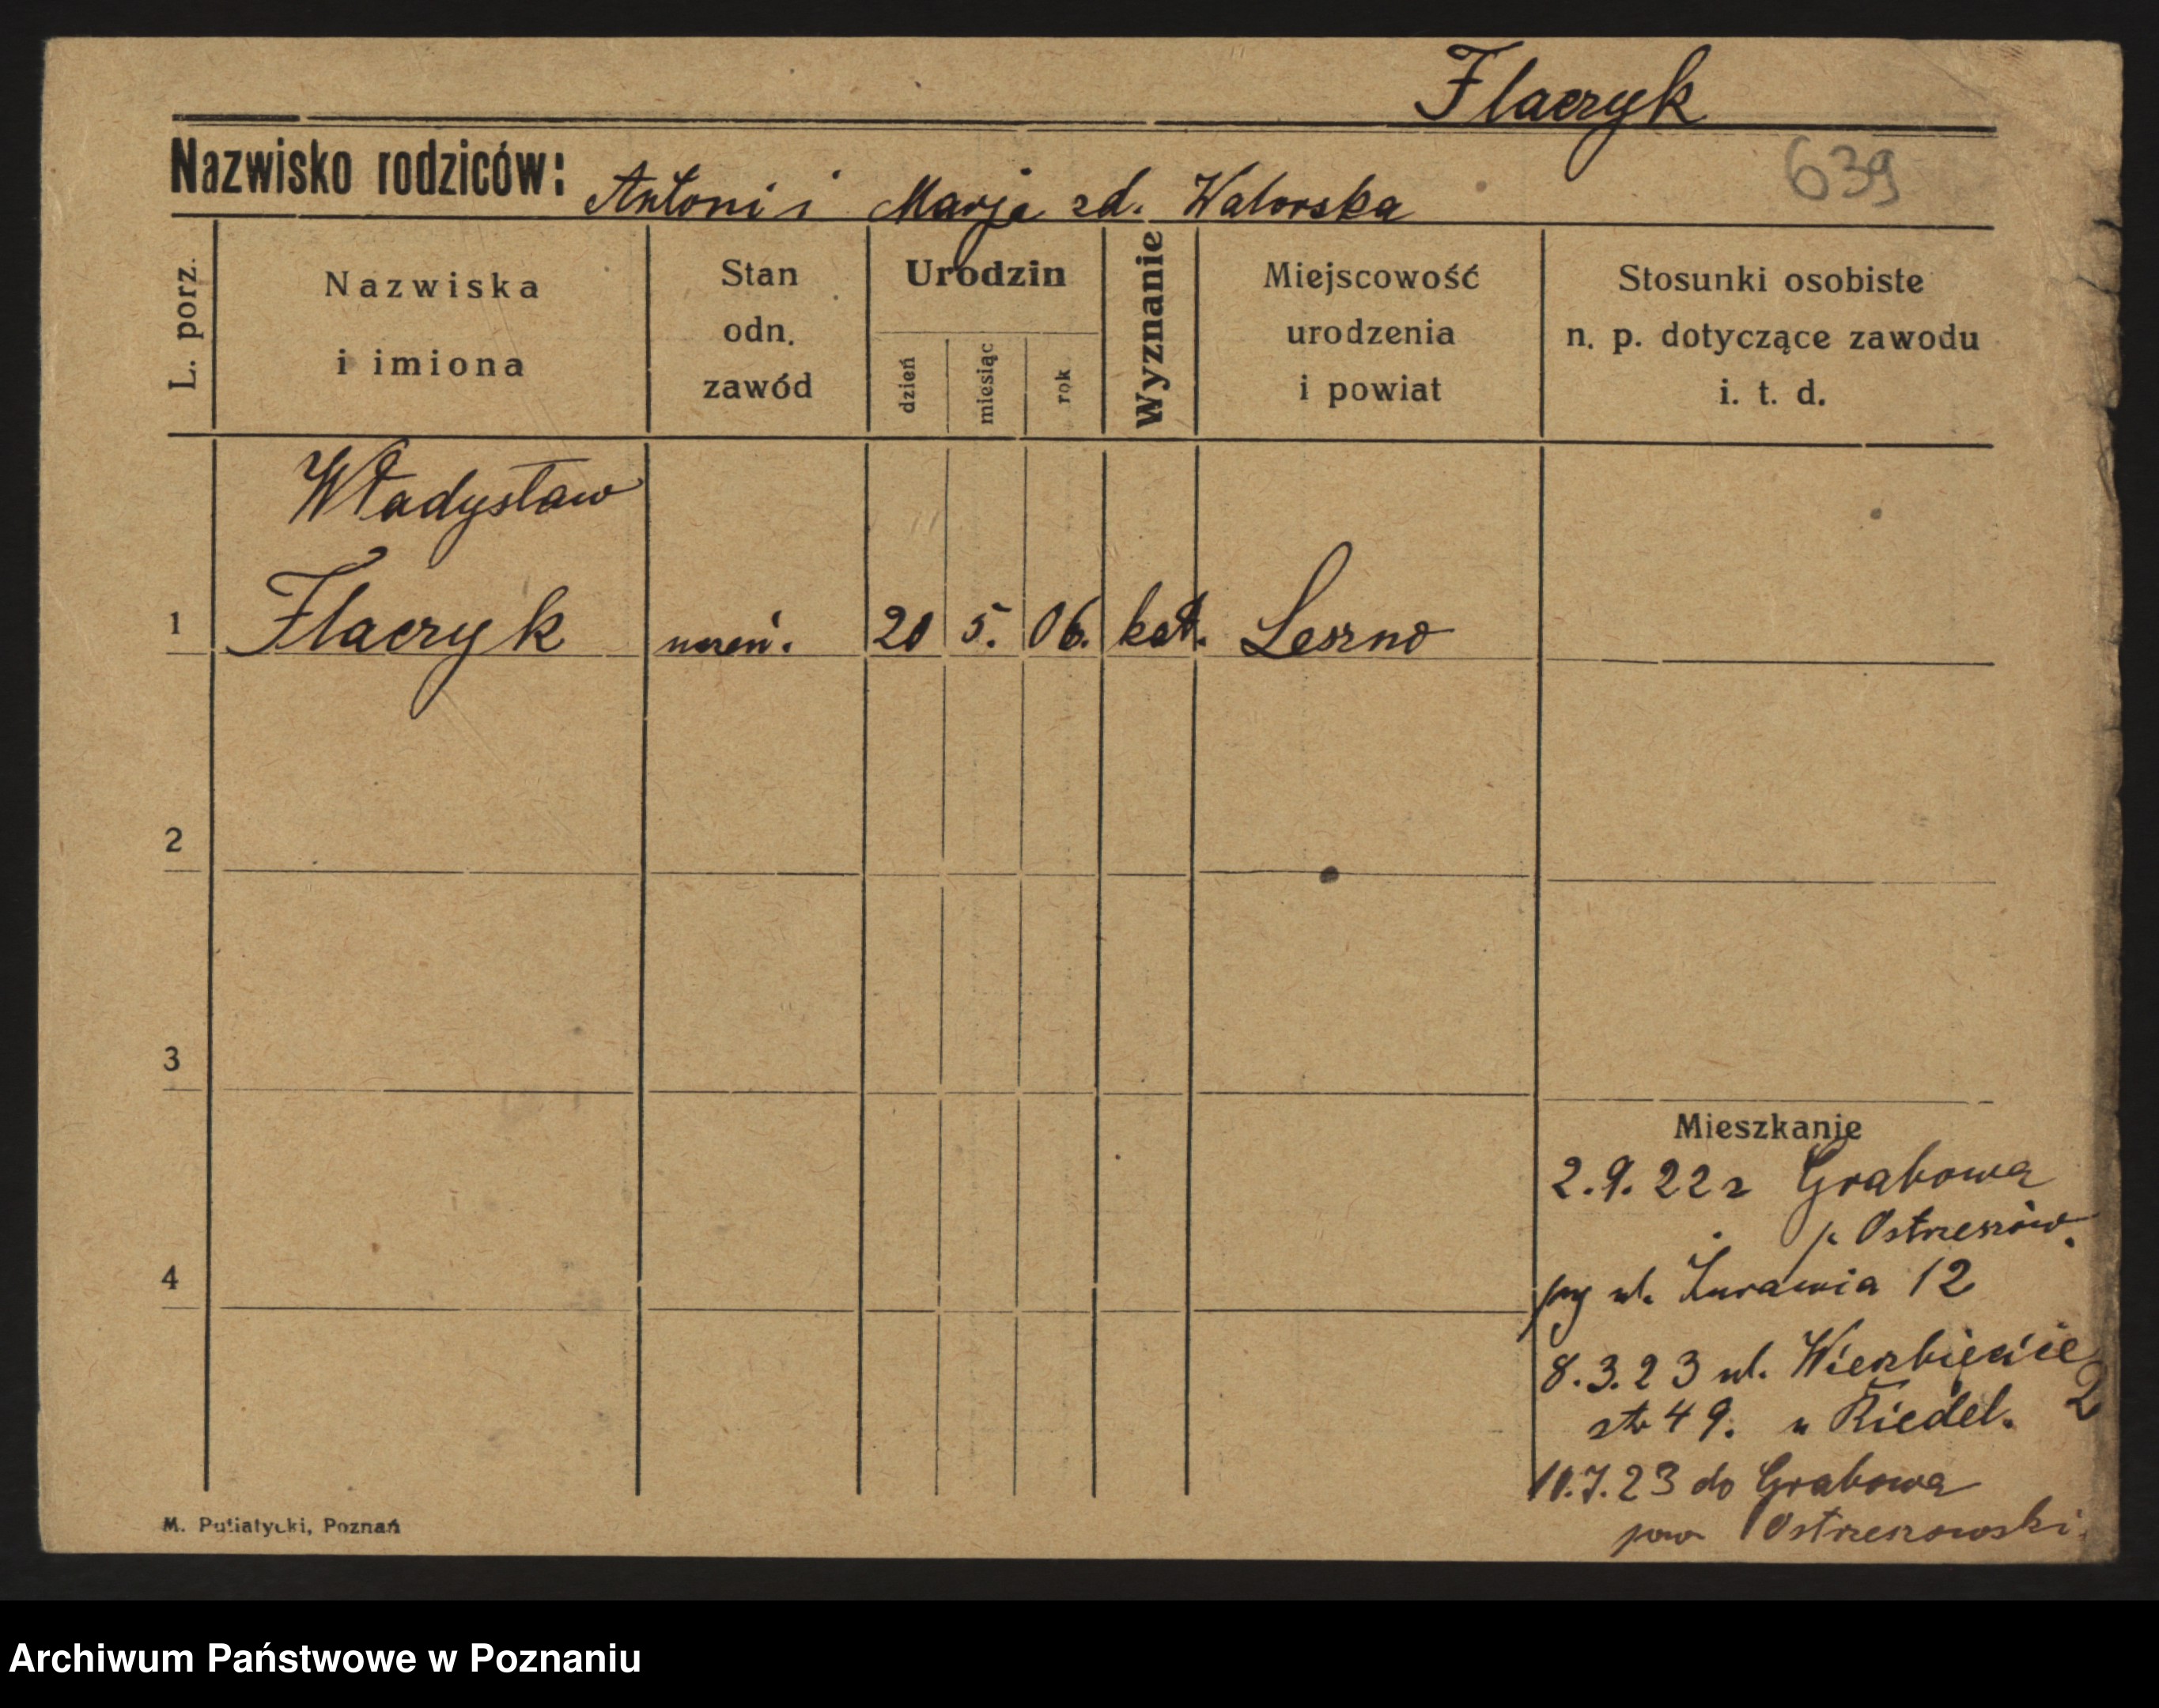 Flaczyk
639
Nazwisko rodziców: Antoni i Marja zd. Walorska
L. porz.
Nazwiska
i imiona
Stan
odn.
zawód
Urodzin
dzień
miesiąc
rok
Wyznanie
Miejscowość
urodzenia
i powiat
Stosunki osobiste
n. p. dotyczące zawodu
i. t. d.
Władysław
1 Flaczyk uczeń. 20 5. 06. kat. Leszno
2
3
Mieszkanie
2.9.22 z Grabowa
p. Ostrzeszów.
4
ul. Żurawia 12
8.3.23 ul. Wierzbięcice
49. u Riedel. 2
10.7.23 do Grabowa
pow Ostrzeszowski.
M. Putiatycki, Poznań
Archiwum Państwowe w Poznaniu